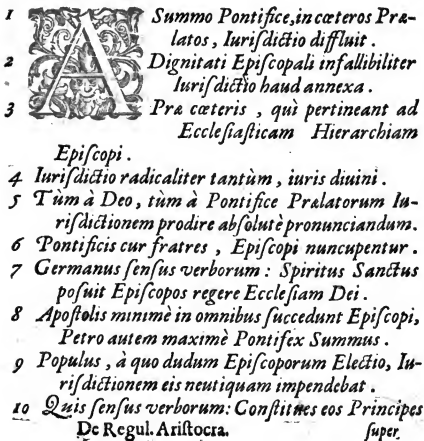 1 A Summo Pontifice, in cœteros Præ-
latos, Iuriſdictio diffluit.
2 Dignitati Epiſcopali infallibiliter
Iuriſdictio haud annexa.
3 Præ cœteris, quì pertineant ad
Eccleſiaſticam Hierarchiam
Epiſcopi.
4 Iuriſdictio radicaliter tantùm, iuris diuini.
5 Tùm à Deo, tùm à Pontifice Prælatorum Iu-
riſdictionem prodire abſolutè pronunciandum.
6 Pontificis cur fratres, Epiſcopi nuncupentur.
7 Germanus ſenſus verborum: Spiritus Sanctus
poſuit Epiſcopos regere Eccleſiam Dei.
8 Apoſtolis minimè in omnibus ſuccedunt Epiſcopi,
Petro autem maximè Pontifex Summus.
9 Populus, à quo dudum Epiſcoporum Electio, Iu-
riſdictionem eis neutiquam impendebat.
10 Quis ſenſus verborum: Conſtitues eos Principes
De Regul. Ariſtocra. ſuper